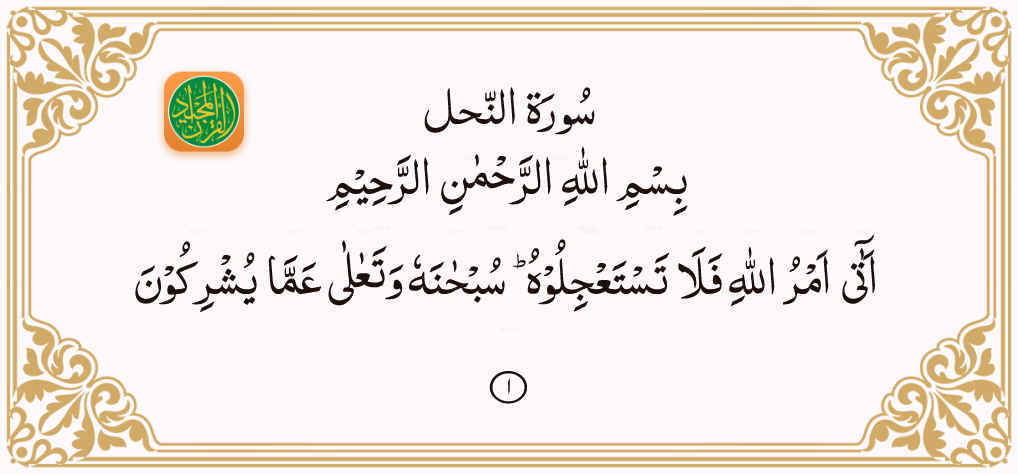 القرآن المجيد
سُورَة النّحل
بِسْمِ اللهِ الرَّحْمٰنِ الرَّحِيْمِ
اَتٰٓى اَمْرُ اللهِ فَلَا تَسْتَعْجِلُوْهُ ؕ سُبْحٰنَهٗ وَتَعٰلٰى عَمَّا يُشْرِكُوْنَ
١